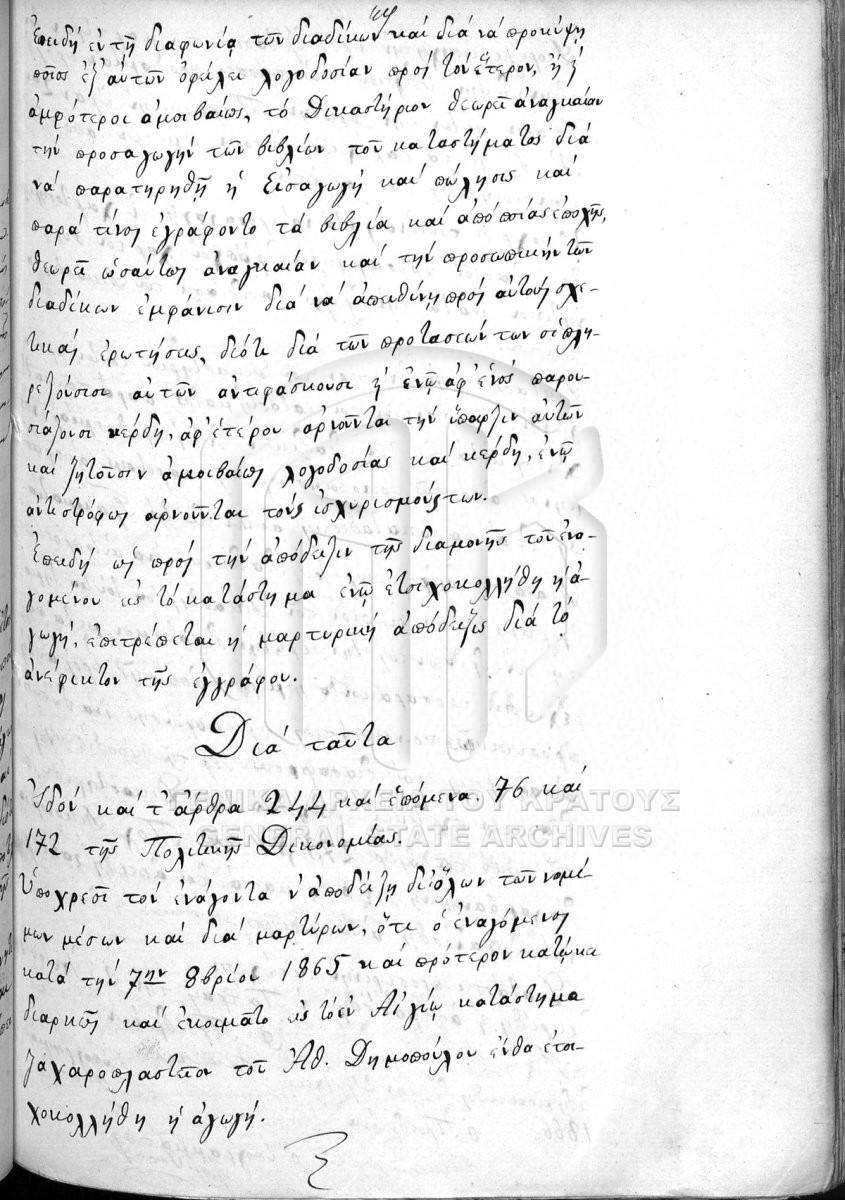 Ἐπειδή ἐν τῇ διαφωνίᾳ τῶν διαδίκων καί διά νά προκύψῃ
ποῖος ἐξ αὐτῶν ὀφείλει λογοδοσίαν πρός τόν ἕτερον, ἤ
ἀμφότεροι ἀμοιβαίως, τό Δικαστήριον θεωρεῖ ἀναγκαίαν
τήν προσαγωγήν τῶν βιβλίων τοῦ καταστήματος διά
νά παρατηρηθῇ ἡ εἰσαγωγή καί πώλησις καί
παρά τίνος ἐγράφοντο τά βιβλία καί ἀπό ποίας ἐποχῆς,
θεωρεῖ ὡσαύτως ἀναγκαίαν καί τήν προσωπικήν τῶν
διαδίκων ἐμφάνισιν διά νά ἀπευθύνῃ πρός αὐτούς σχε-
τικάς ἐρωτήσεις, διότι διά τῶν προτάσεών των οἱ πλη-
ρεξούσιοι αὐτῶν ἀντιφάσκουσι ἐνῷ ἀφ' ἑνός παρου-
σιάζουσι κέρδη, ἀφ' ἑτέρου ἀρνοῦνται τήν ὕπαρξιν αὐτῶν
καί ζητοῦσιν ἀμοιβαίως λογοδοσίας καί κέρδη, ἐνῷ
ἀντιστρόφως ἀρνοῦνται τούς ἰσχυρισμούς των.
Ἐπειδή ὡς πρός τήν ἀπόδειξιν τῆς διαμονῆς τοῦ ἐνα-
γομένου εἰς τό κατάστημα ἐνῷ ἐτοιχοκολλήθη ἡ ἀ-
γωγή, ἐπιτρέπεται ἡ μαρτυρική ἀπόδειξις διά τό
ἀνέφικτον τῆς ἐγγράφου.
Διά ταῦτα
Ἰδόν καί τ' ἄρθρα 244 καί ἑπόμενα 76 καί
172 τῆς Πολιτικῆς Δικονομίας.
Ὑποχρεοῖ τόν ἐνάγοντα ν' ἀποδείξῃ δι' ὅλων τῶν νομί-
μων μέσων καί διά μαρτύρων, ὅτι ὁ ἐναγόμενος
κατά τήν 7ην 8βρίου 1865 καί πρότερον κατῴκει
διαρκῶς καί ἐκοιμᾶτο εἰς τό ἐν Αἰγίῳ κατάστημα
ζαχαροπλαστεῖον τοῦ Ἀθ. Δημοπούλου ἔνθα ἐτοι-
χοκολλήθη ἡ ἀγωγή.
ΓΕΝΙΚΑ ΑΡΧΕΙΑ ΤΟΥ ΚΡΑΤΟΥΣ
GENERAL STATE ARCHIVES